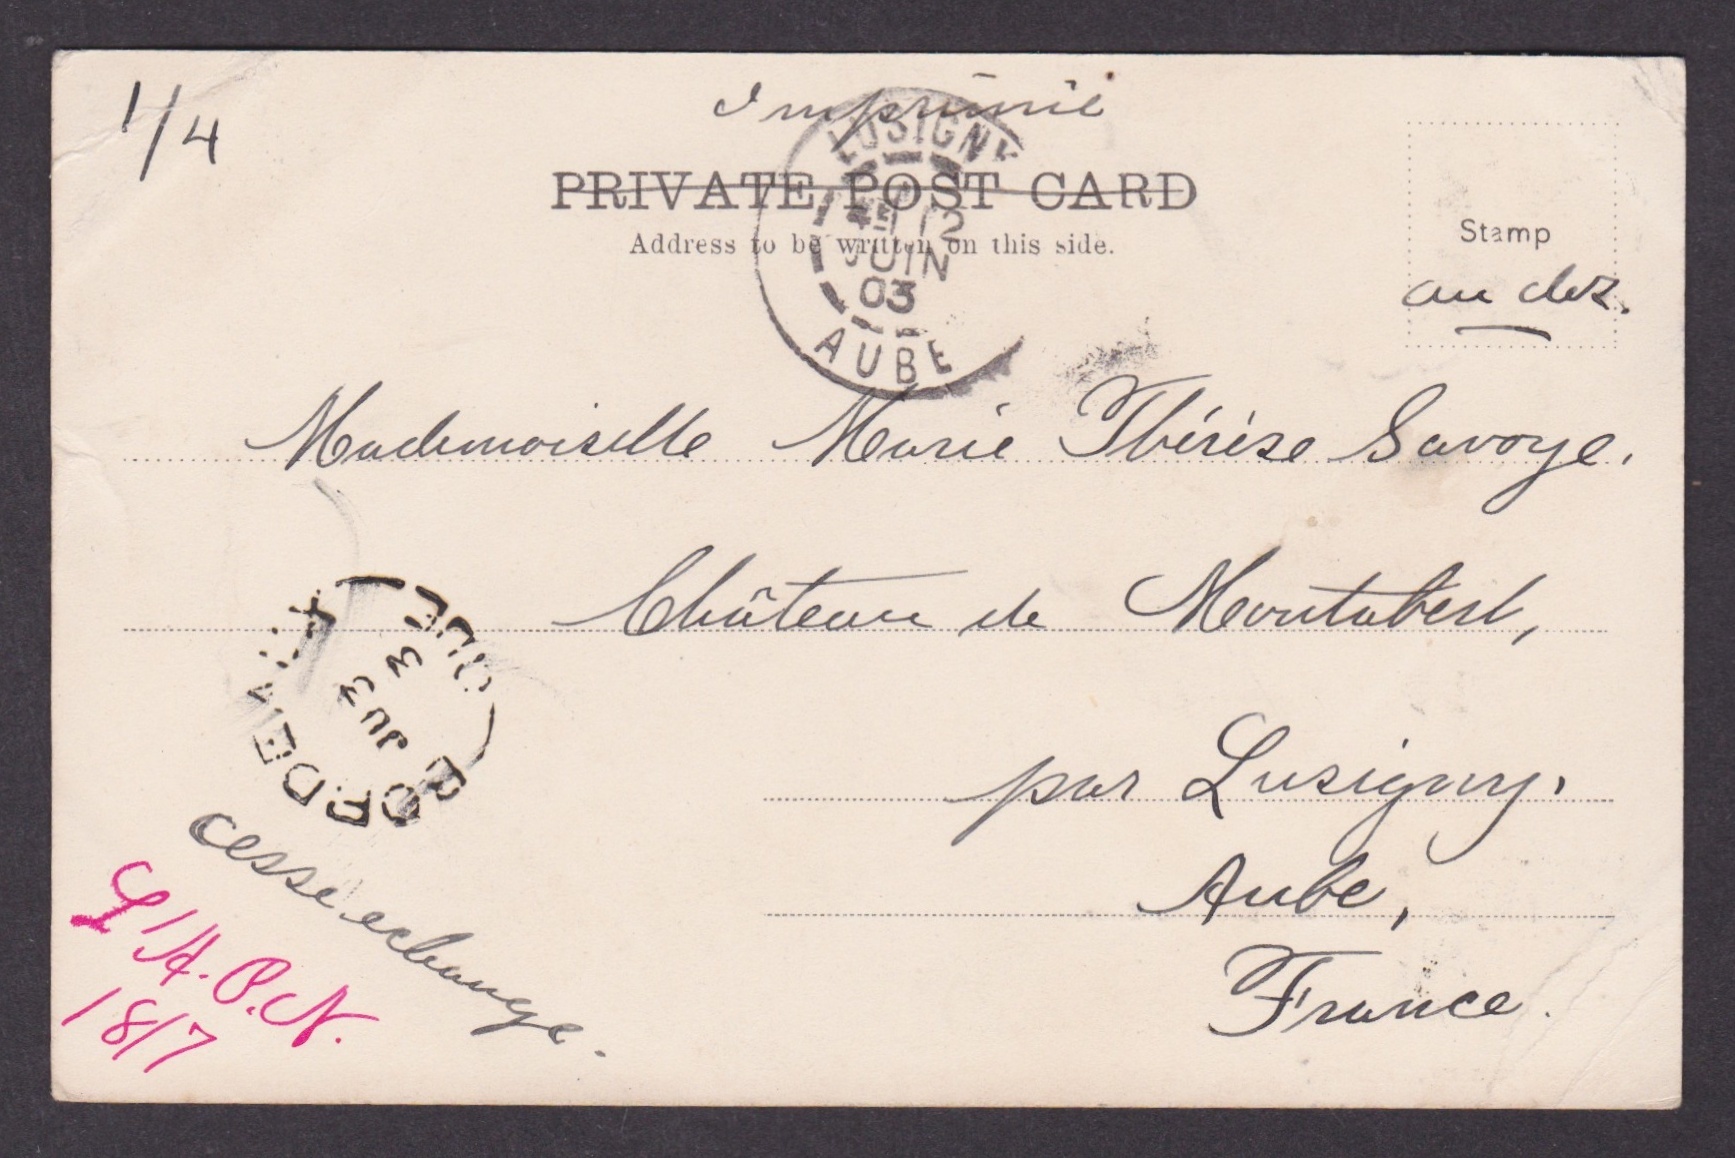 1/4
Imprimé
PRIVATE POST CARD
Address to be written on this side.
LUSIGNY
12
JUIN
03
AUBE
Stamp
au dos.
Mademoiselle Marie Thérèse Savoye.
Château de Montabert,
par Lusigny.
Aube,
France.
QUE
3
JU 3
cesse echange.
L'A.P.N.
18/7